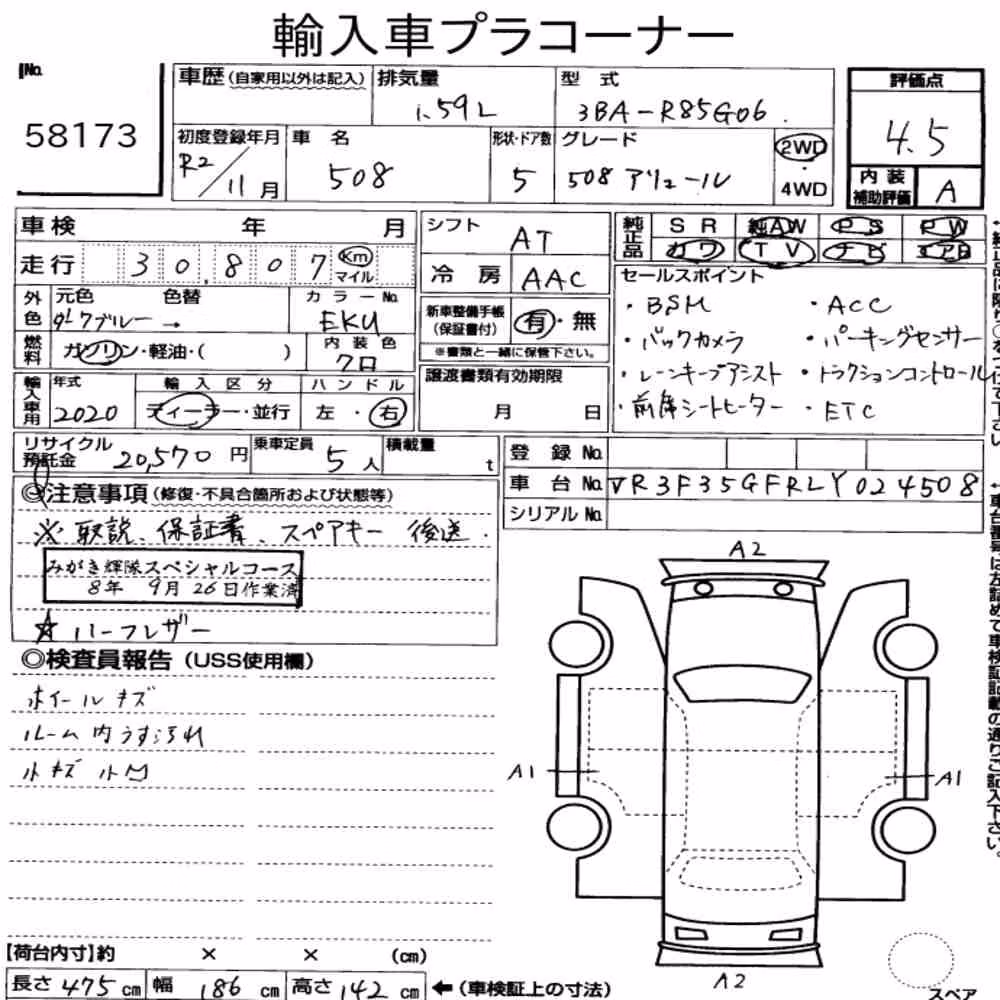 輸入車プラコーナー
No.
58173
車歴（自家用以外は記入）
排気量
1.59L
型式
3BA-R85G06
初度登録年月
R2/11月
車名
508
形状・ドア数
5
グレード
508 アリュール
2WD
・
4WD
評価点
4.5
内装
補助評価
A
車検 年 月
走行 30,807 Km マイル
シフト
AT
冷房
AAC
純正品
SR 純AW PS PW
カワ TV ナビ エアB
外色
元色 色替
ダークブルー→
カラーNo.
EKU
燃料
ガソリン・軽油・( )
内装色
クロ
新車整備手帳
(保証書付)
有・無
※書類と一緒に保管下さい。
セールスポイント
・BSM ・ACC
・バックカメラ ・パーキングセンサー
・レーンキープアシスト ・トラクションコントロール
・前席シートヒーター ・ETC
輸入車用
年式
2020
輸入区分
ディーラー・並行
ハンドル
左・右
譲渡書類有効期限
月 日
リサイクル
預託金
20,570円
乗車定員
5人
積載量
t
登録No.
車台No. VR3F35GFRLY024508
シリアルNo.
◎注意事項（修復・不具合箇所および状態等）
※取説、保証書、スペアキー 後送.
みがき輝隊スペシャルコース
8年 9月 26日作業済
☆ハーフレザー
◎検査員報告（USS使用欄）
ホイールキズ
ルーム内うす汚れ
小キズ 小凹
A2
A1
A1
A2
【荷台内寸】約 × × (cm)
長さ475cm 幅186cm 高さ142cm ←（車検証上の寸法）
スペア
↑車台番号は左詰めで車検証記載の通りご記入下さい。